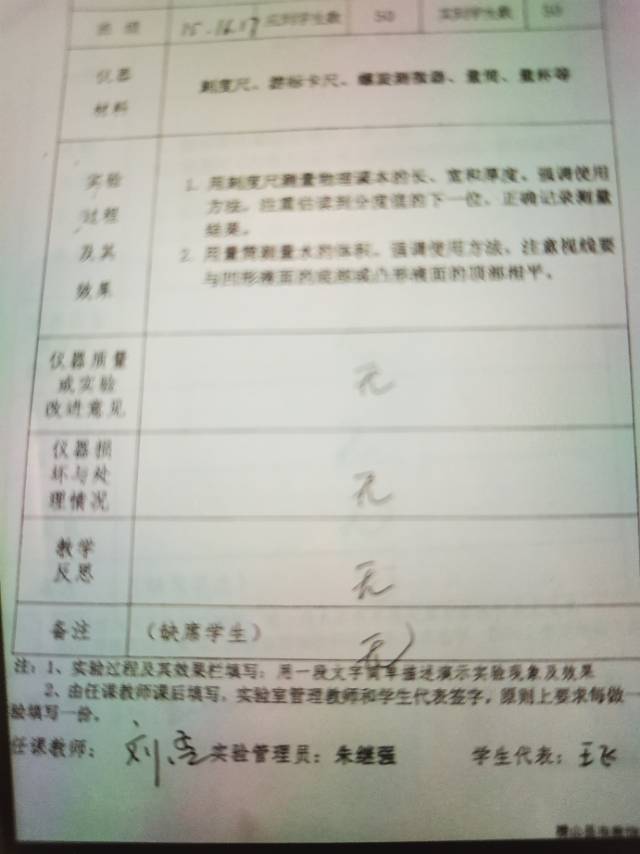 班级 15.16.17 应到学生数 50 实到学生数 50
仪器
材料
刻度尺、游标卡尺、螺旋测微器、量筒、量杯等
实验
过程
及其
效果
1. 用刻度尺测量物理课本的长、宽和厚度。强调使用
方法。注重估读到分度值的下一位。正确记录测量
结果。
2. 用量筒测量水的体积。强调使用方法、注意视线要
与凹形液面的底部或凸形液面的顶部相平。
仪器质量
或实验
改进意见
无
仪器损
坏与处
理情况
无
教学
反思
无
备注 (缺席学生) 无
注：1、实验过程及其效果栏填写：用一段文字简单描述演示实验现象及效果
2、由任课教师课后填写，实验室管理教师和学生代表签字，原则上要求每做
验填写一份。
任课教师： 刘 实验管理员：朱继强 学生代表：王飞